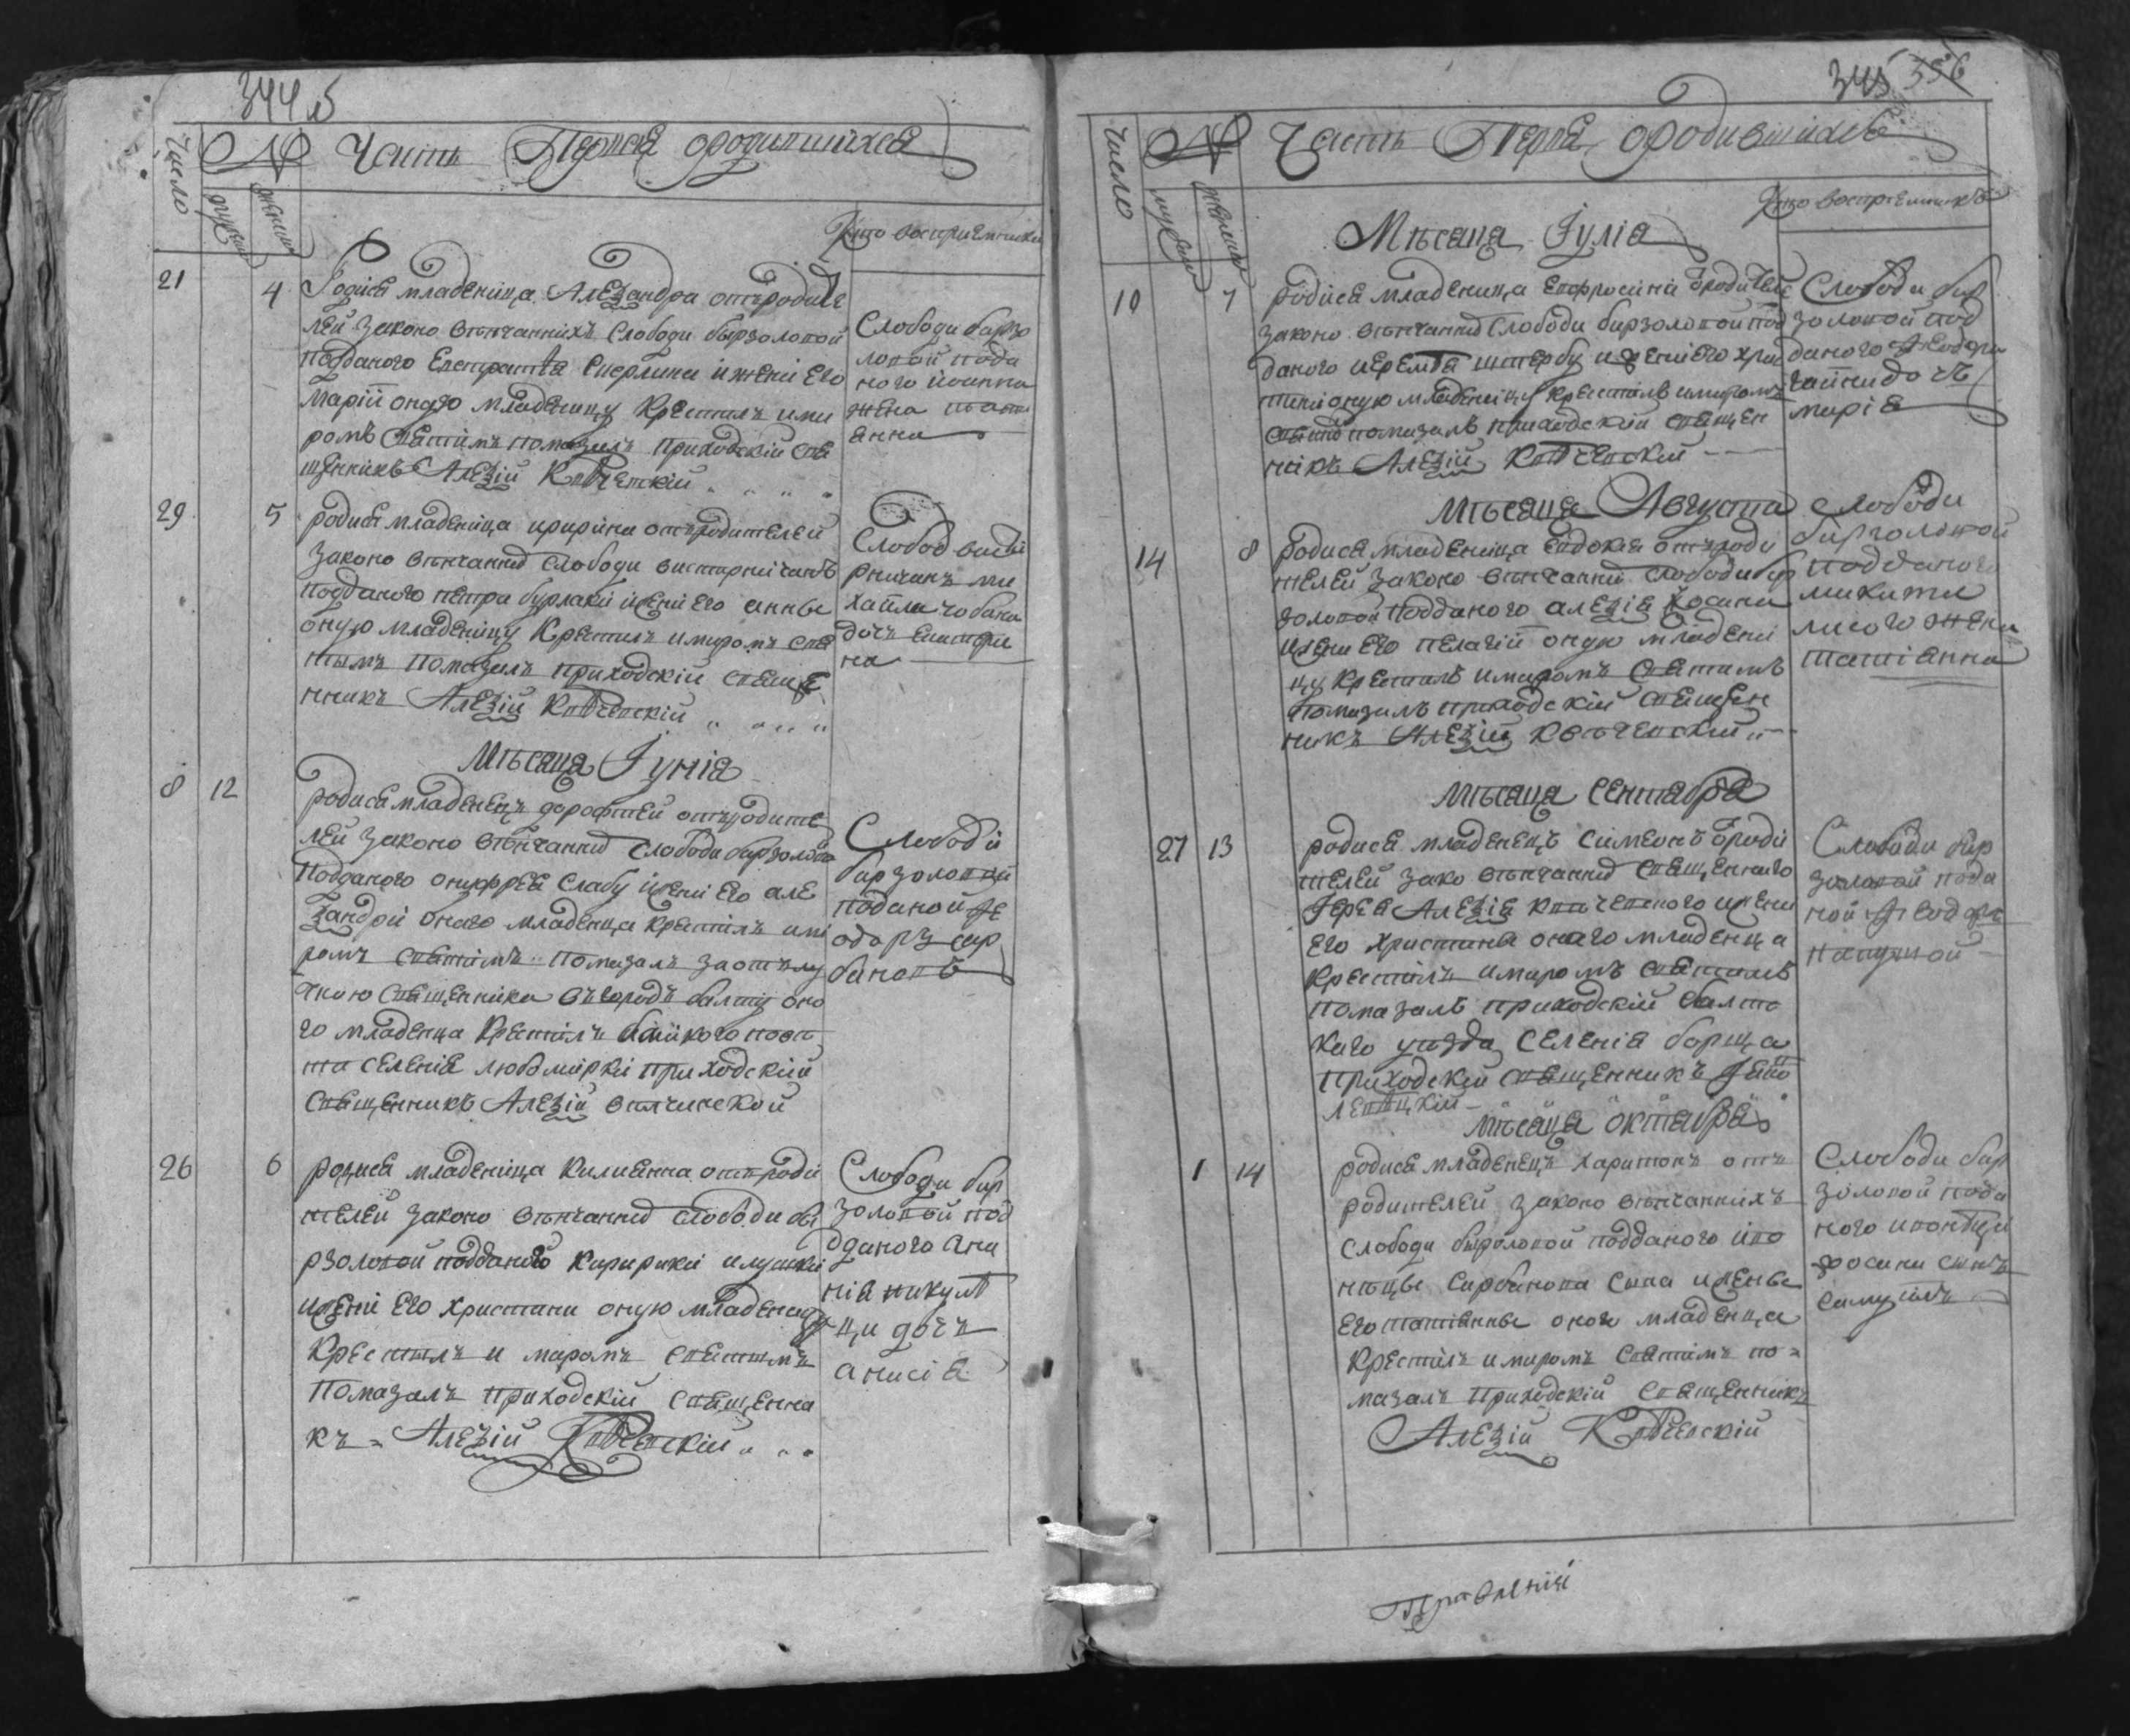 344 б
Число
№
Часть Перваѧ ородившихсѧ
мужеска
женска
Кто восприемники
21
4
Родисѧ младеница Алеѯандра отъродите
лей законо вѣнчаннихъ Слободи бырзоловой
подданого Евстратїѧ Сперлини и жени Его
Марїй оную младеницу Крестилъ ими
ромъ свѧтимъ помазалъ приходскїй свѧ
щенникъ Алеѯїй Ковчевскїй
Слободи бирзо
ловой пода
ного иоанна
жена тати
анна
29
5
родисѧ младеница иририна отъродителей
законо вѣнчанних Слободи
подданого петра бурлаки и жени Его анны
оную младеницу Крестилъ имиромъ свѧ
тымъ помазалъ приходскїй свѧще
нникъ Алеѯїй Ковчевскїй
Слобод
ми
хайла чобана
дочъ Екатери
на
Мѣсѧца Іунїѧ
8
12
родисѧ младенецъ дорофтей отъродите
лей законо вѣнчанних Слободи бирзоловой
подданого онуфрѣѧ Слабу и жени Его але
ѯандрїй онаго младенца Крестилъ ими
ромъ свѧтимъ помазалъ заотлу
чкою свѧщенника въгородъ балту оно
го младенца Крестилъ
селенїѧ любомирки приходскїй
свѧщенникъ Алеѯїй
Слободи
бирзоловой
поданой Ѳе
одоръ сир
бановъ
26
6
родисѧ младеница Килиѧнна отъроди
телей законо вѣнчанних слободи би
рзоловой подданого Киририки
и жени Его христини оную младеницу
Крестилъ и миромъ свѧтимъ
помазалъ приходскїй свѧщенни
къ = Алеѯїй Ковчевскїй
Слободи бир
золовой под
даного ана
нїѧ никули
ци дочъ
анисїѧ
345 356
Число
№
Часть Первѧ ородившихсѧ
мужеска
женска
Кто восприемникъ
Мѣсѧца Іулїѧ
10
7
родисѧ младеница Евфросини ѿродителей
законо вѣнчанних Слободи бирзоловой под
даного иеремїѧ и жени Его хрис
тини оную младеницу Крестилъ имиромъ
свѧтим помазалъ приходскїй свѧщен
никъ Алеѯїй Ковчевскїй
Слободи бир
золовой под
даного Ѳеодора
дочъ
мирїѧ
Мѣсѧца Августа
14
8
родисѧ младеница Евдокиѧ отъроди
телей законо вѣнчанних слободи бир
золовой подданого алеѯїѧ Косини
и жени Его пелагїй оную младени
цу Крестилъ имиромъ свѧтимъ
помазалъ приходскїй свѧщен
никъ Алеѯїй Ковчевскїй
слободи
бирзоловой
подданого
микити
лисого жена
татїанна
Мѣсѧца Сентѧбрѧ
27
13
родисѧ младенецъ Симеонъ ѿроди
телей зако вѣнчанних свѧщенного
Іерѣѧ Алеѯїѧ Ковчевского и жени
Его христини онаго младенца
Крестилъ имиромъ свѧтимъ
помазалъ приходскїй балтс
каго уѣзда Селенїѧ борща
приходскїй свѧщенникъ
Слободи бир
золовой пода
ной Ѳеодоръ
Мѣсѧца Октѧбрѧ
1
14
родисѧ младенецъ харитонъ отъ
родителей законо вѣнчаннихъ
Слободи бырзоловой подданого
Сирбинова Сина и жены
Его татїѧнны оного младенца
Крестилъ имиромъ Свѧтимъ по=
мазалъ Приходскїй Свѧщенникъ
Алеѯїй Ковчевскїй
Слободи бир
золовой пода
ного
Косини синъ
Самуилъ